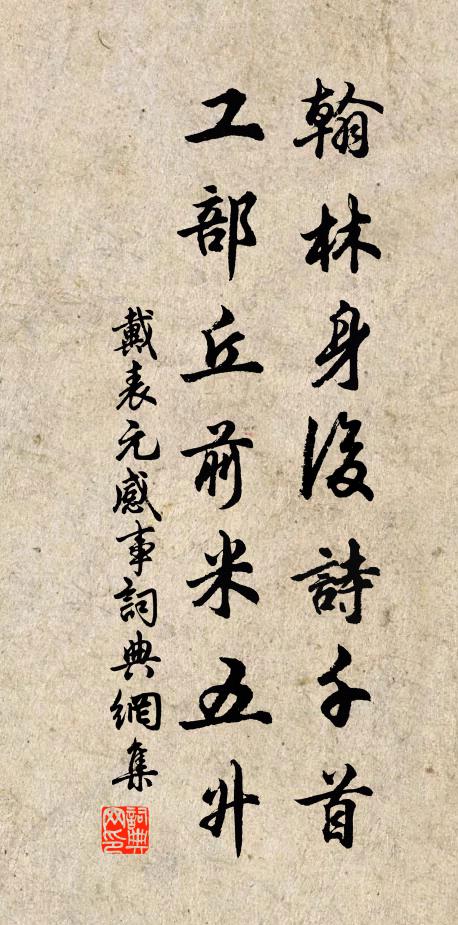 翰林身後詩千首
工部丘前米五升
戴表元感事詞典網集
詞典网印